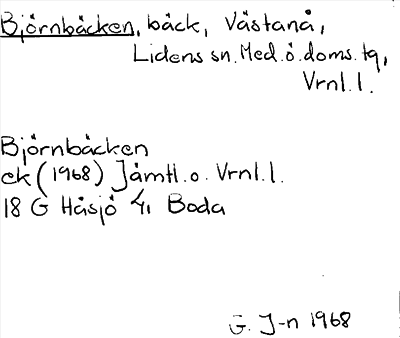 Björnbäcken, bäck, Västanå,
Lidens sn. Med. ö. doms. tq,
Vrnl. l.
Björnbäcken
ek (1968) Jämtl. o. Vrnl. l.
18 G Håsjö 4, Boda
G. J-n 1968